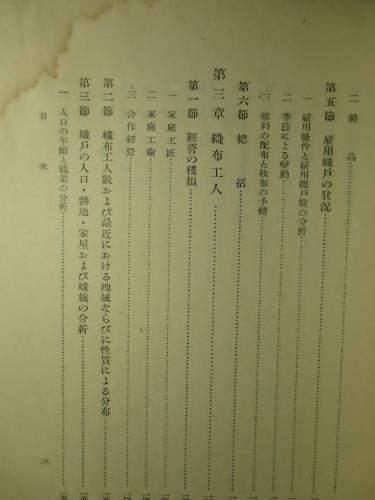 二 製品
第五節 雇用織戸の狀況
一 雇用條件と雇用織戸數の分析
二 季節による變動
三 原料の配布と收布の手續
第六節 總括
第三章 織布工人
第一節 經營の種類
一 家庭工匠
二 家庭工廠
三 合作經營
第二節 織布工人數および最近における地域ならびに性質による分布
第三節 織戸の人口・耕地・家屋および織機の分析
一 人口の年齡と職業の分析
目次